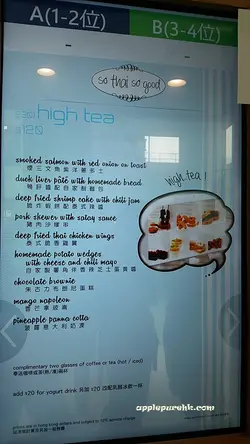 A(1-2位)
B(3-4位)
so thai so good
high tea
smoked salmon with red onion on toast
煙三文魚紫洋蔥多士
duck liver pâté with homemade bread
鴨肝醬配自家製麵包
deep fried shrimp cake with chili jam
high tea!
pork skewer with satay sauce
豬肉沙嗲串
deep fried thai chicken wings
泰式脆香雞翼
homemade potato wedges
with cheese and chili mayo
chocolate brownie
朱古力布朗尼蛋糕
mango napoleon
香芒拿破崙
pineapple panna cotta
菠蘿意大利奶凍
complimentary two glasses of coffee or tea (hot / iced)
add $20 for yogurt drink
applepurehk.com